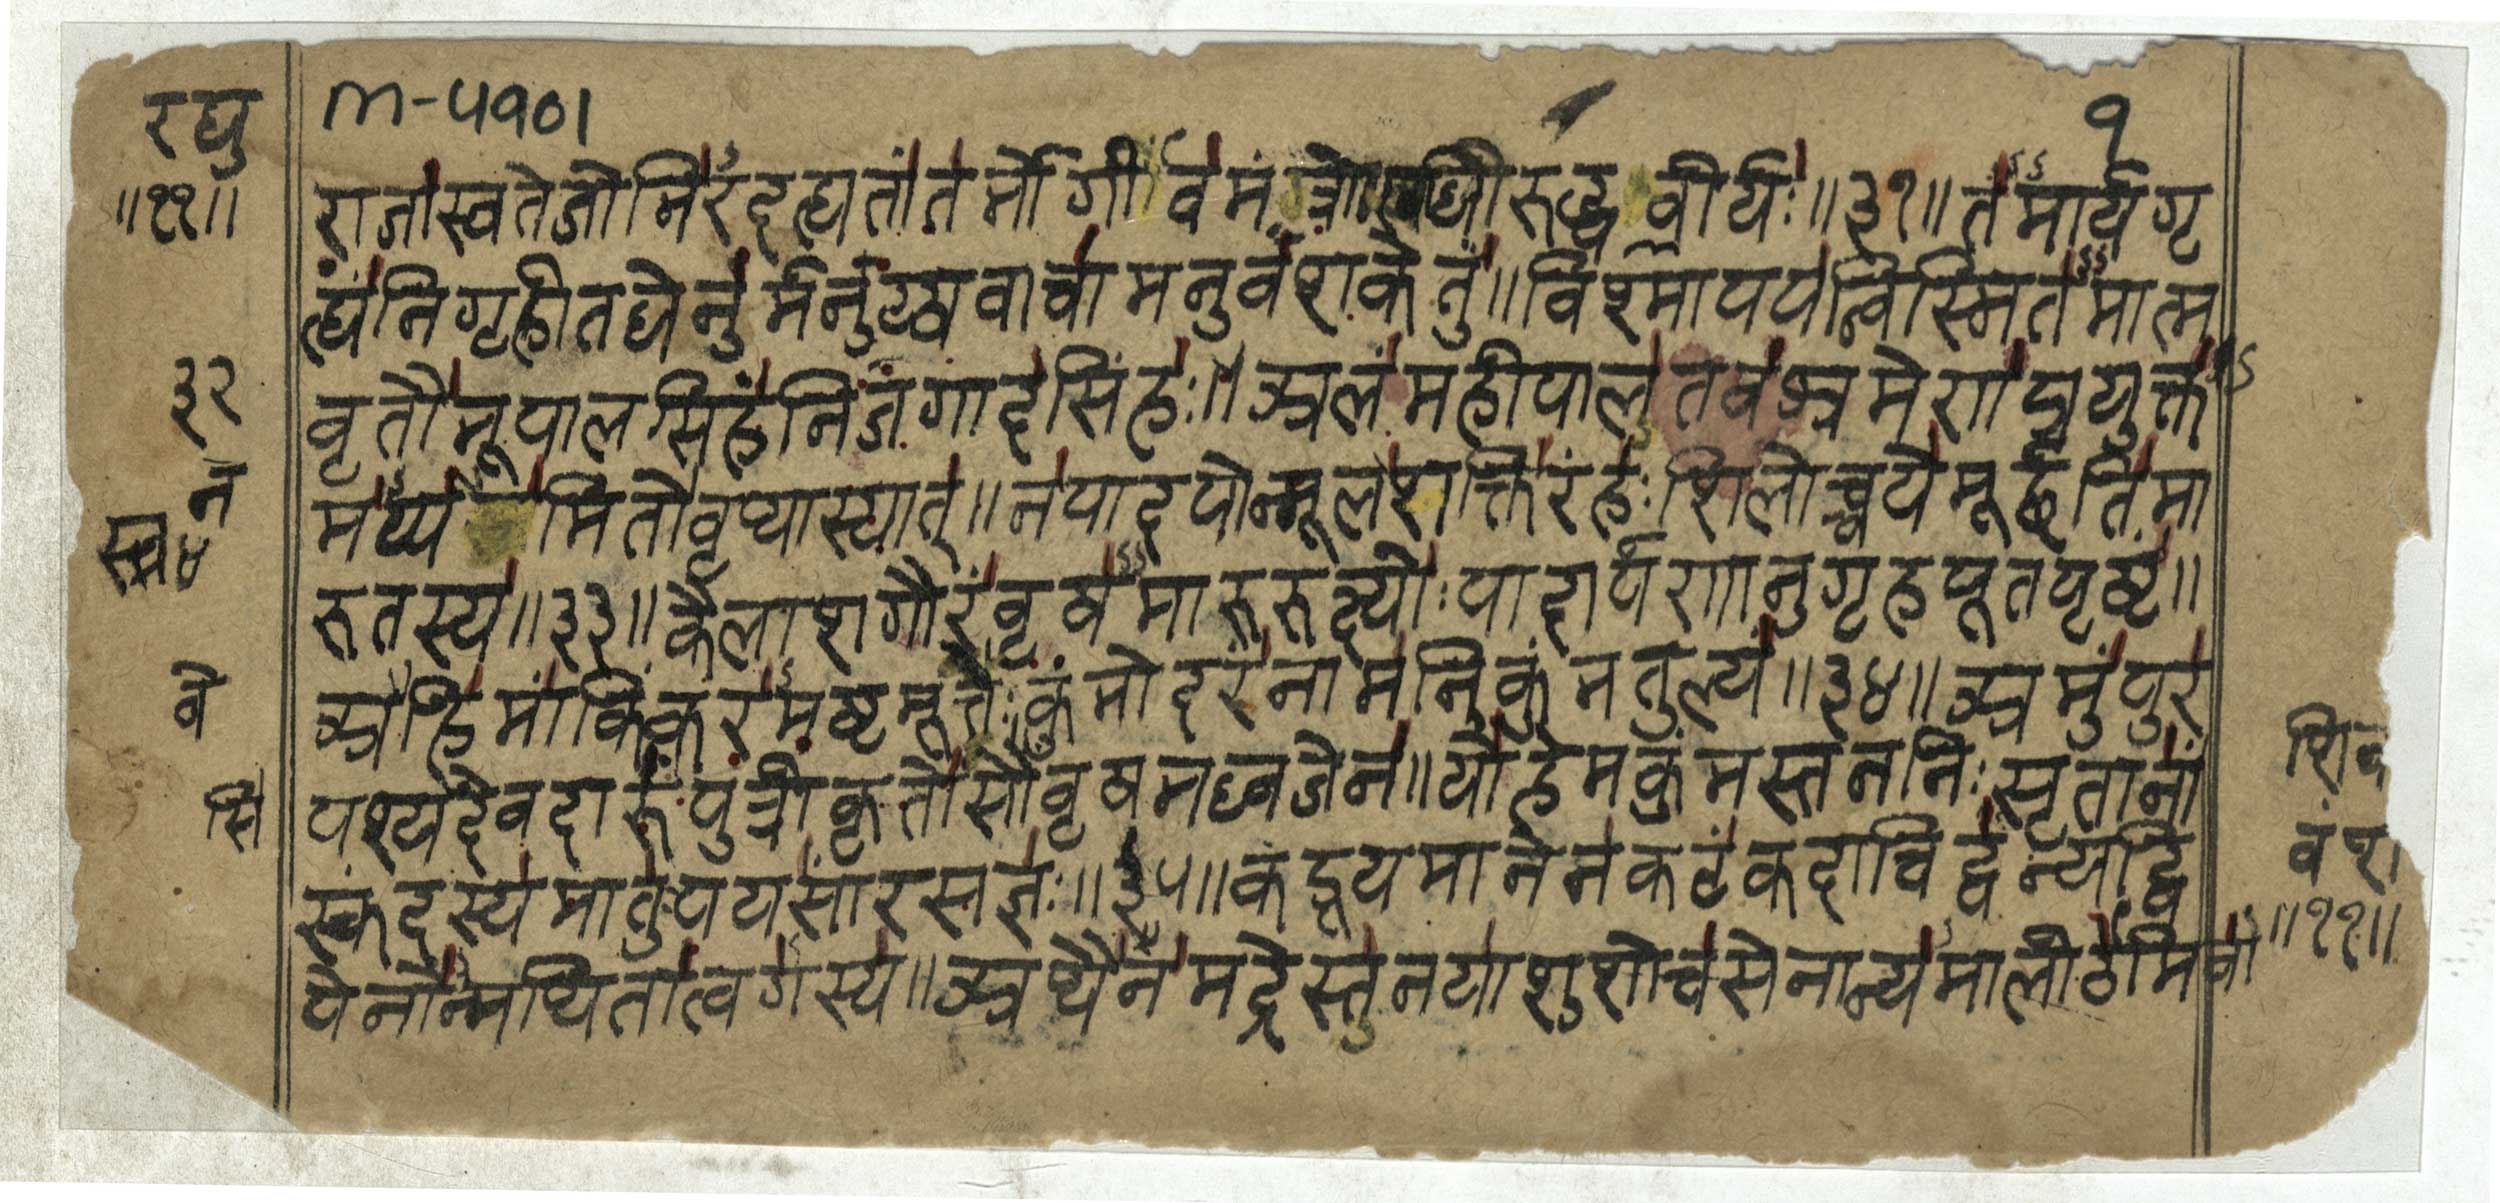 रघु
॥११॥
m-५१०१
१
राजास्वतेजोभिरदह्यतांतर्भोगीवमंत्रौषधिरुद्धवीर्यः॥३१॥तमार्यगृ
ह्यंनिगृहीतधेनुर्मनुष्यवाचामनुवंशकेतुं॥विश्मापयन्विस्मितमात्म
वृतौभूपालसिंहंनिजगादसिंहः॥अलंमहीपालतवश्रमेणप्रयुक्त
मप्य मितोवृथास्यात्॥नपादपोन्मूलशक्तिरंहःशिलोच्चयेमूर्छतिमा
रुतस्य॥३३॥कैलाशगौरंवृषमारुरुक्ष्योःपादार्पणानुगृहपूतपृष्टं॥
अवेहिमांकिंकरमष्टमूर्तेःकुंभोदरंनामनिकुंभतुल्यं॥३४॥अमुंपुर
पश्यदेवदारुंपुत्रीकृतोसौवृषभध्वजेन॥योहेमकुंभस्तननिःसृतानां
स्कंदस्यमातुःपयसांरसज्ञः॥३५॥कंडूयमानेनकटंकदाचिद्वन्यद्वि
पेनोन्मथितात्वगस्य॥अथैनमद्रेस्तनयाशुशोचसेनान्यमालीढमिवा
३२
न
वे
सि
शिव
वंश
॥११॥